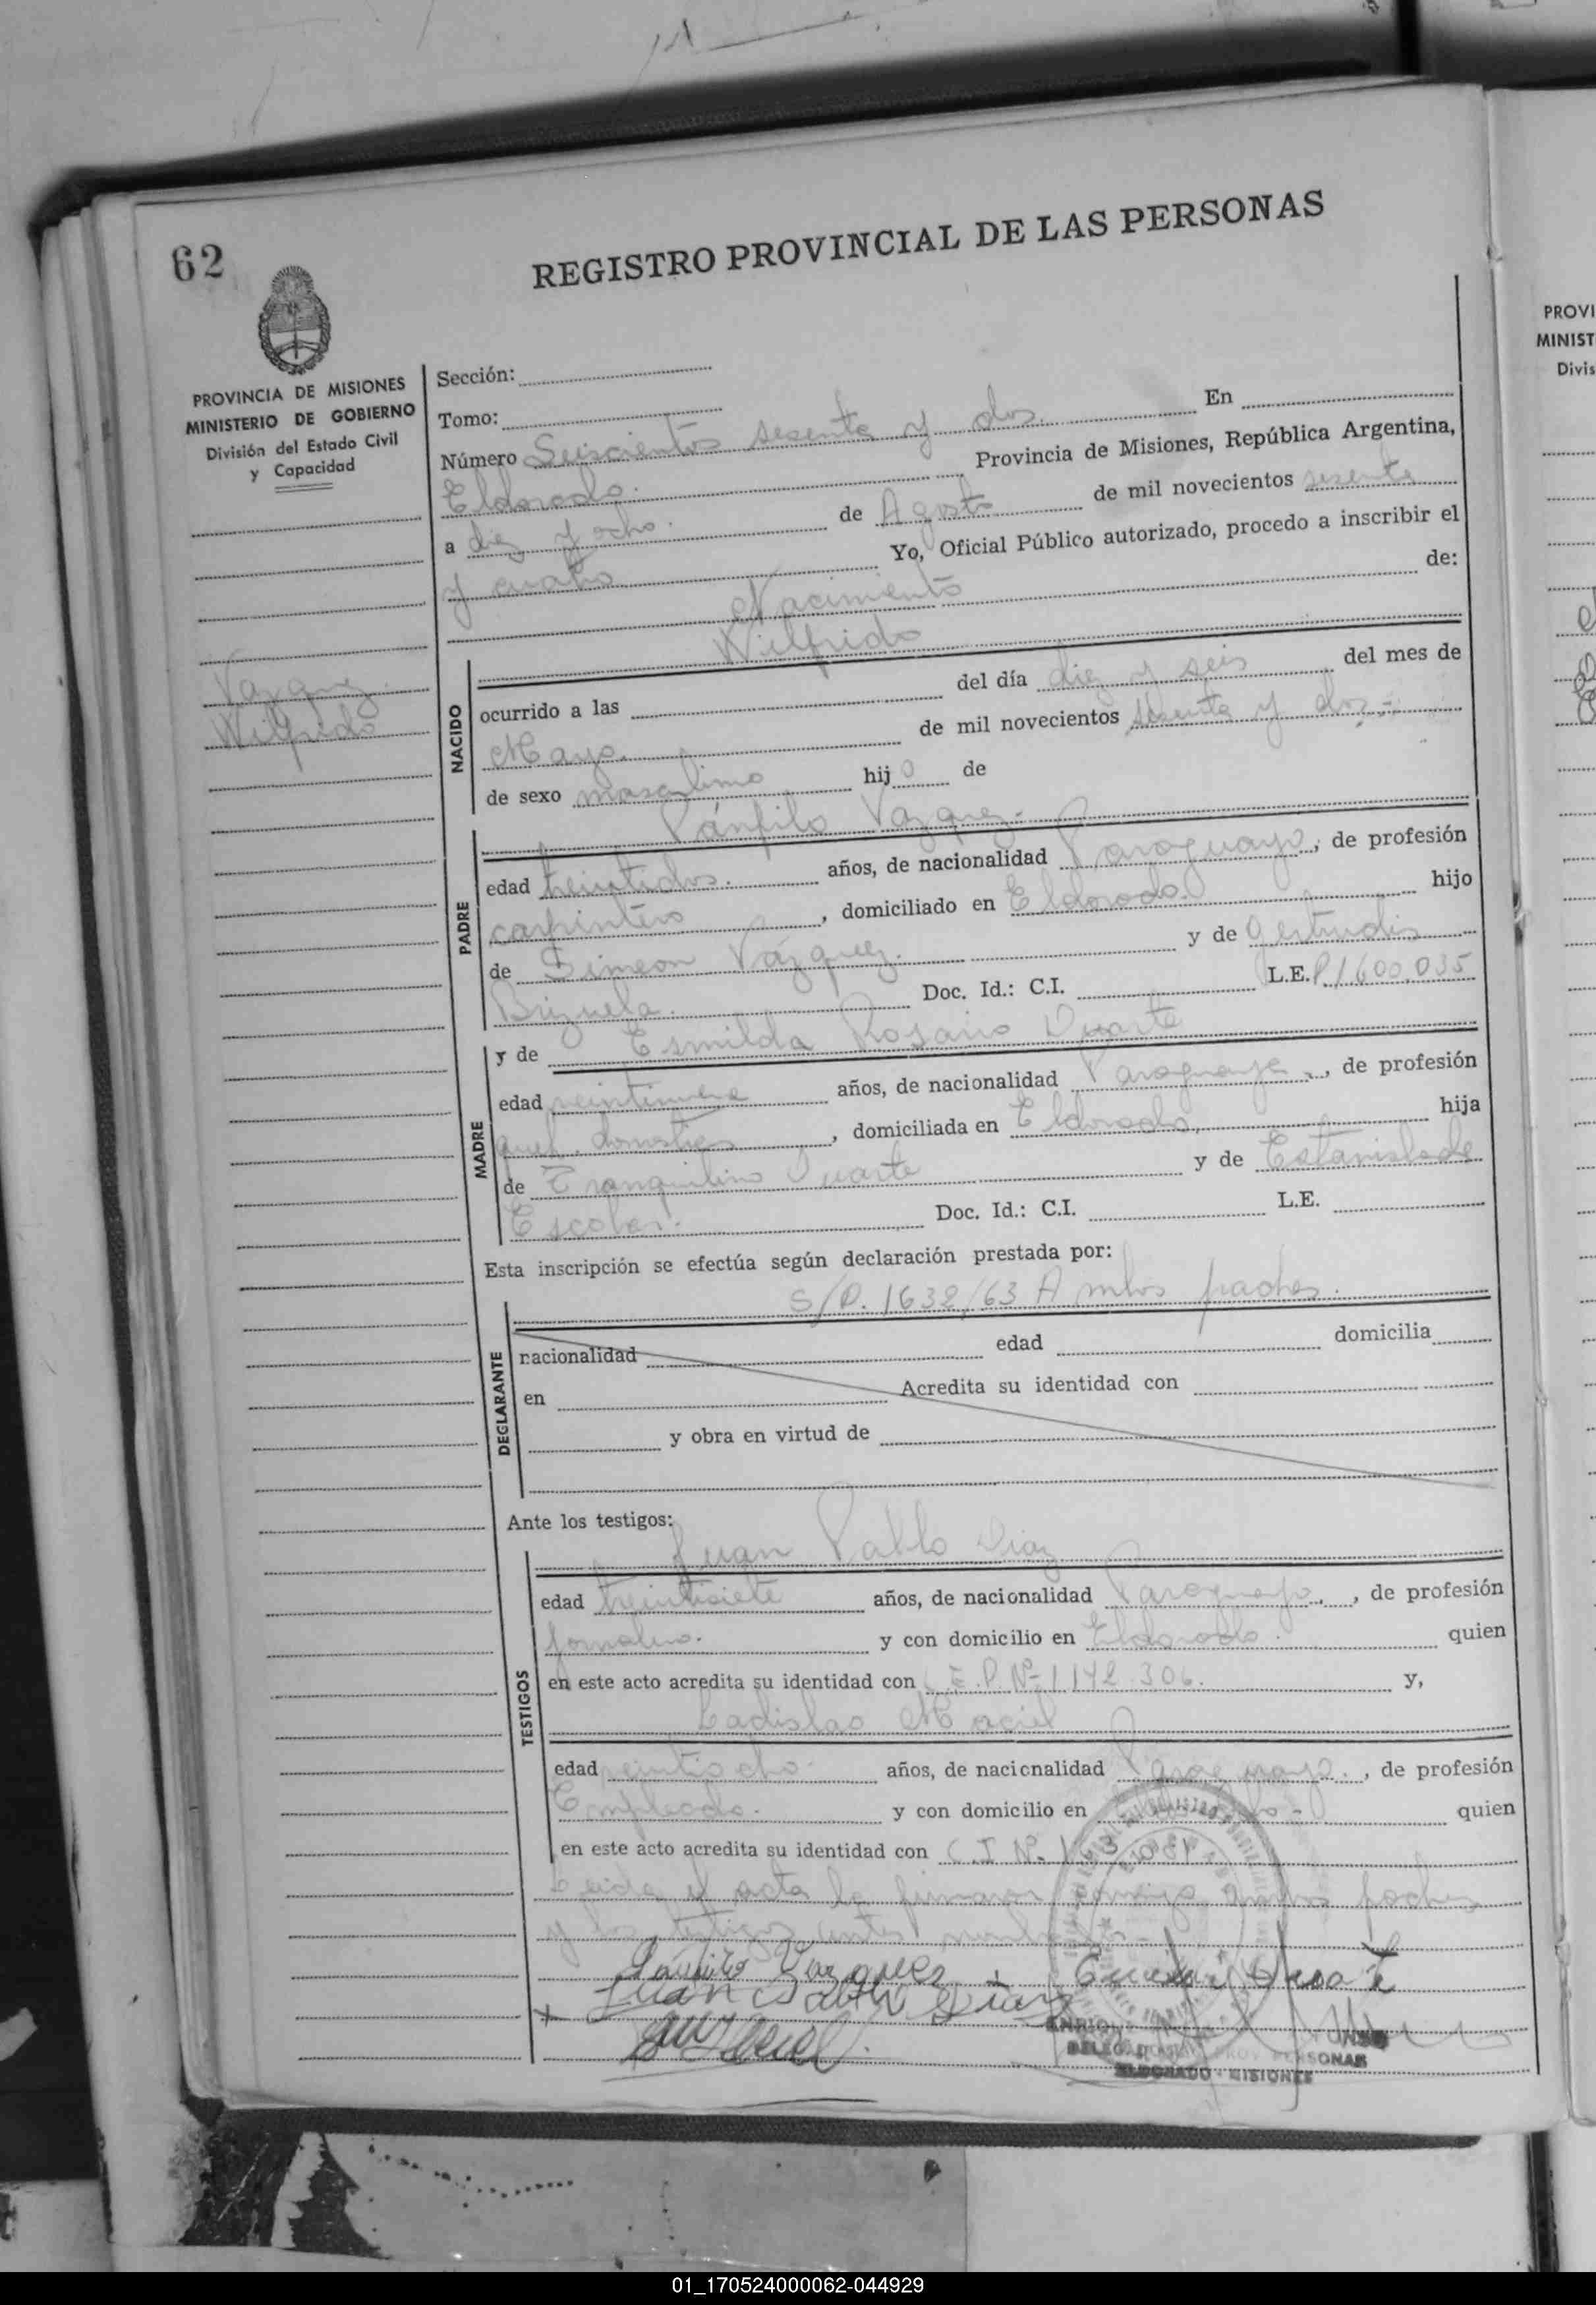 62
REGISTRO PROVINCIAL DE LAS PERSONAS
PROVINCIA DE MISIONES
MINISTERIO DE GOBIERNO
División del Estado Civil
y Capacidad
Vazquez
Wilfrido
Sección:
Tomo:
Número Seiscientos sesenta y dos. En
Eldorado. Provincia de Misiones, República Argentina,
a diez y ocho. de Agosto de mil novecientos sesenta
y cuatro Yo, Oficial Público autorizado, procedo a inscribir el
Nacimiento de:
Wilfrido
NACIDO
ocurrido a las del día diez y seis del mes de
Mayo. de mil novecientos sesenta y dos.-
de sexo masculino hijo de
Pánfilo Vazquez.
PADRE
edad treintidos. años, de nacionalidad Paraguayo, de profesión
carpintero, domiciliado en Eldorado. hijo
de Simeon Vázquez. y de Gertrudis
Brizuela. Doc. Id.: C.I. L.E. P/1600.035
MADRE
y de Esmilda Rosario Duarte
edad veintinueve años, de nacionalidad Paraguaya, de profesión
queh. domestics, domiciliada en Eldorado, hija
de Tranquilino Duarte y de Estanislada
Escobar. Doc. Id.: C.I. L.E.
Esta inscripción se efectúa según declaración prestada por:
S/P. 1632/63 Ambos padres.
DECLARANTE
nacionalidad edad domicilia
en Acredita su identidad con
y obra en virtud de
Ante los testigos:
Juan Pablo Diaz
TESTIGOS
edad treintisiete años, de nacionalidad Paraguayo, de profesión
jornalero. y con domicilio en Eldorado. quien
en este acto acredita su identidad con C.E.P. Nº 1142.306. y,
Ladislao Maciel
edad veintiocho. años, de nacionalidad Paraguayo., de profesión
Empleado. y con domicilio en quien
en este acto acredita su identidad con C.I Nº. 163.081
Leida el acta la firmaron conmigo ambos padres
y los testigos antes
Pánfilo Vazquez
Juan Pablo Diaz
ELDORADO - MISIONES
PROVI
MINIST
Divis
01_170524000062-044929